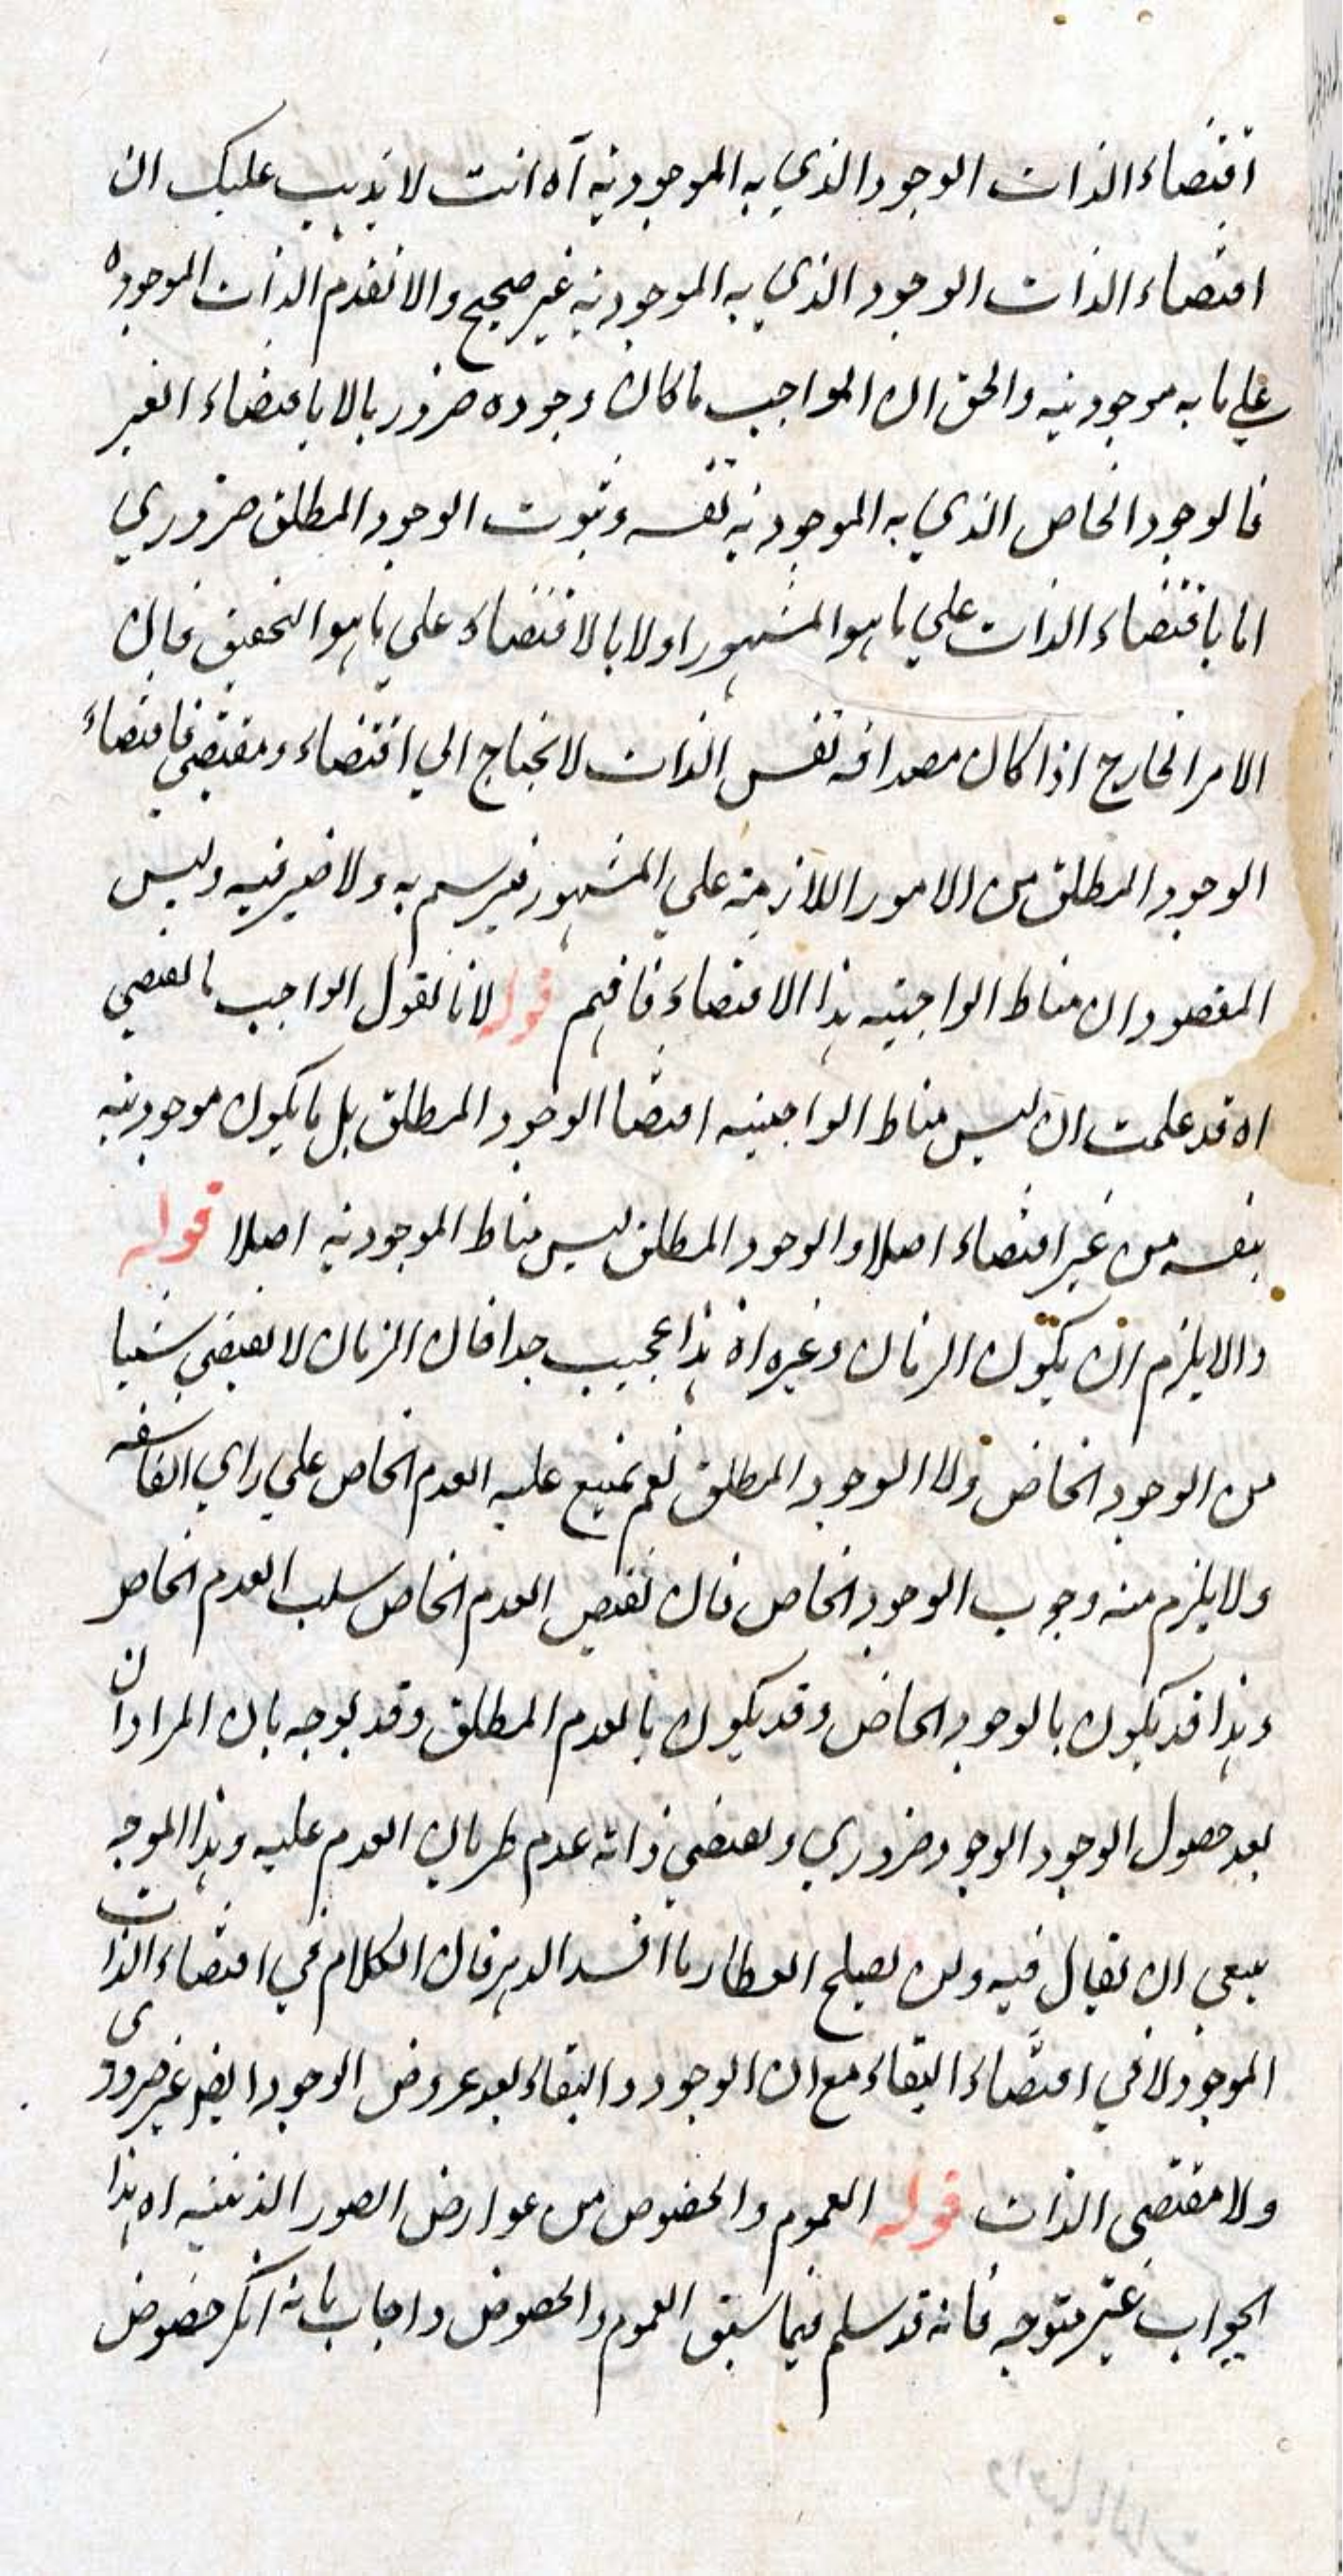 اقتضاء الذات الوجود الذي به الموجودية آه انت لا يذهب عليك ان
اقتضاء الذات الوجود الذي به الموجودية غير صحيح والا تقدم الذات الموجوده
علي ما به موجوديته والحق ان الواجب ما كان وجوده ضروريا لا باقتضاء الغير
فالوجود الخاص الذي به الموجودية نفسه وثبوت الوجود المطلق ضروري
اما باقتضاء الذات علي ما هو المشهور اولا بالاقتضاء علي ما هو التحقيق فان
الامر الخارج اذا كان مصداقه نفس الذات لا يحتاج الي اقتضاء ومقتضي فاقتضاء
الوجود المطلق من الامور اللازمة علي المشهور فيرسم به ولا ضير فيه وليس
المقصود ان مناط الواجبيه هذا الاقتضاء فافهم قوله لانا نقول الواجب ما يقتضي
اه قد علمت ان ليس مناط الواجبيه اقتضا الوجود المطلق بل ما يكون موجوديته
بنفسه من غير اقتضاء اصلا والوجود المطلق ليس مناط الموجودية اصلا قوله
والا يلزم ان يكون الزمان وغيره اه هذا عجيب جدا فان الزمان لا يقتضي شيئا
من الوجود الخاص ولا الوجود المطلق نعم يمتنع عليه العدم الخاص علي راي الفلاسفه
ولا يلزم منه وجوب الوجود الخاص فان نقيض العدم الخاص سلب العدم الخاص
وهذا قد يكون بالوجود الخاص وقد يكون بالعدم المطلق وقد يوجه بان المراد ان
بعد حصول الوجود الوجود ضروري ويقتضي ذاته عدم طريان العدم عليه وهذا الموجه
ينبغي ان يقال فيه ولن يصلح العطار ما افسد الدهر فان الكلام في اقتضاء الذات
الموجود لا في اقتضاء البقاء مع ان الوجود والبقاء بعد عروض الوجود ايضا غير ضروري
ولا مقتضى الذات قوله العموم والخصوص من عوارض الصور الذهنيه اه هذا
الجواب غير متوجه فانه قد سلم فيما سبق العموم والخصوص واجاب بانه انكر خصوص